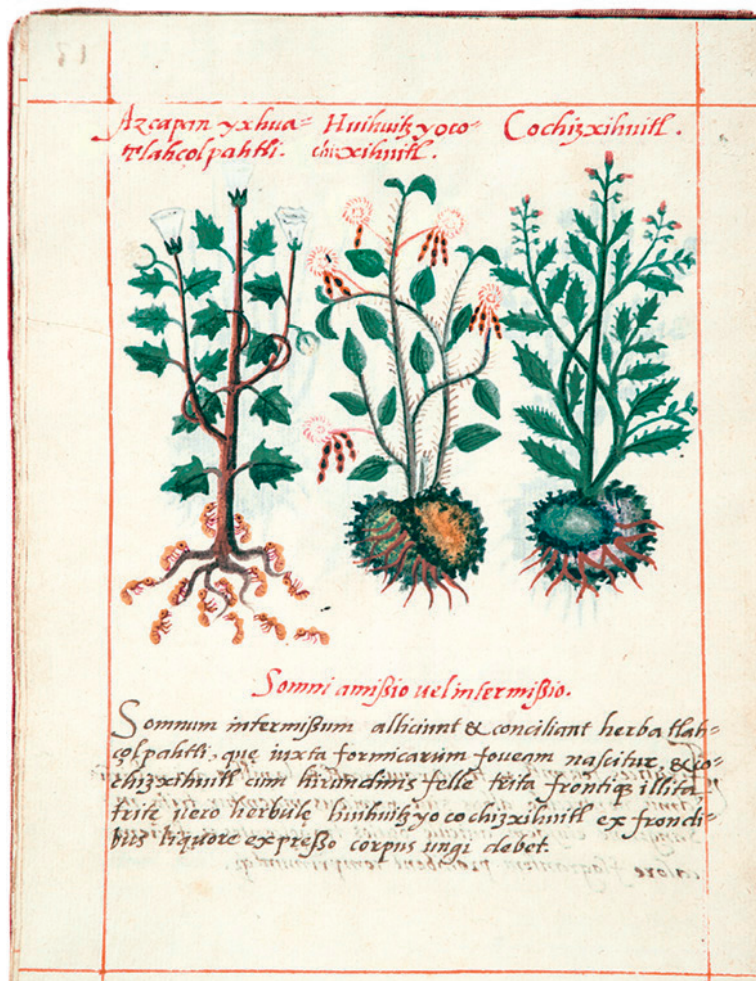 Azcapan yxhua=
tlahçolpahtli.
Huihuitzyoco=
chizxihuitl.
Cochizxihuitl.
Somni amißio uel intermißio.
Somnum intermißum alliciunt & conciliant herba tlah=
çolpahtli, quę iuxta formicarum foueam nascitur, & co=
chizxihuitl cum hirundinis felle trita frontiq; illita
tritę uero herbulę huihuitzyocochizxihuitl ex frondi=
bus liquore expreßo corpus ungi debet.